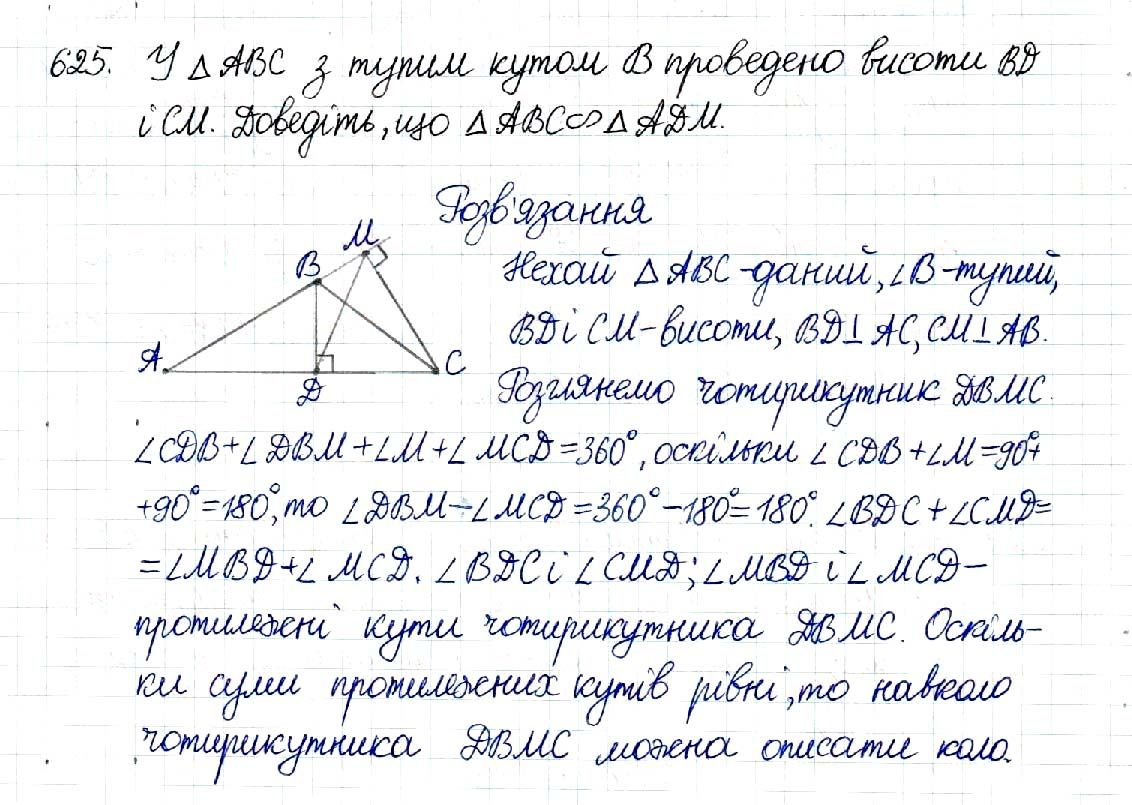 625. У △ABC з тупим кутом B проведено висоти BD
і CM. Доведіть, що △ABC∽△ADM.
Розв'язання
M
B
A
D
C
Нехай △ABC - даний, ∠B - тупий,
BD і CM - висоти, BD⊥AC, CM⊥AB.
Розглянемо чотирикутник DBMC.
∠CDB+∠DBM+∠M+∠MCD=360°, оскільки ∠CDB+∠M=90°+
+90°=180°, то ∠DBM+∠MCD=360°-180°=180°. ∠BDC+∠CMD=
=∠MBD+∠MCD. ∠BDC і ∠CMD; ∠MBD і ∠MCD -
протилежні кути чотирикутника DBMC. Оскіль-
ки суми протилежних кутів рівні, то навколо
чотирикутника DBMC можна описати коло.